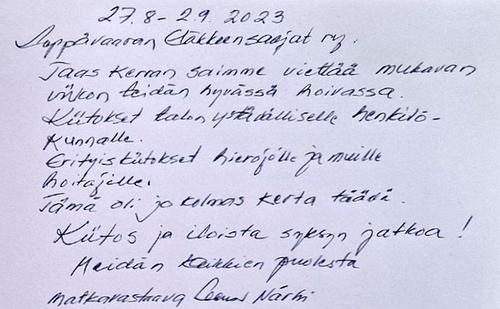 27.8 - 2.9. 2023
Leppävaaran Eläkkeensaajat ry.
Taas kerran saimme viettää mukavan
viikon teidän hyvässä hoivassa.
Kiitokset talon ystävälliselle henkilö-
kunnalle.
Erityiskiitokset hierojille ja muille
hoitajille.
Tämä oli jo kolmas kerta täällä.
Kiitos ja iloista syksyn jatkoa !
Meidän kaikkien puolesta
matkavastaava Närhi